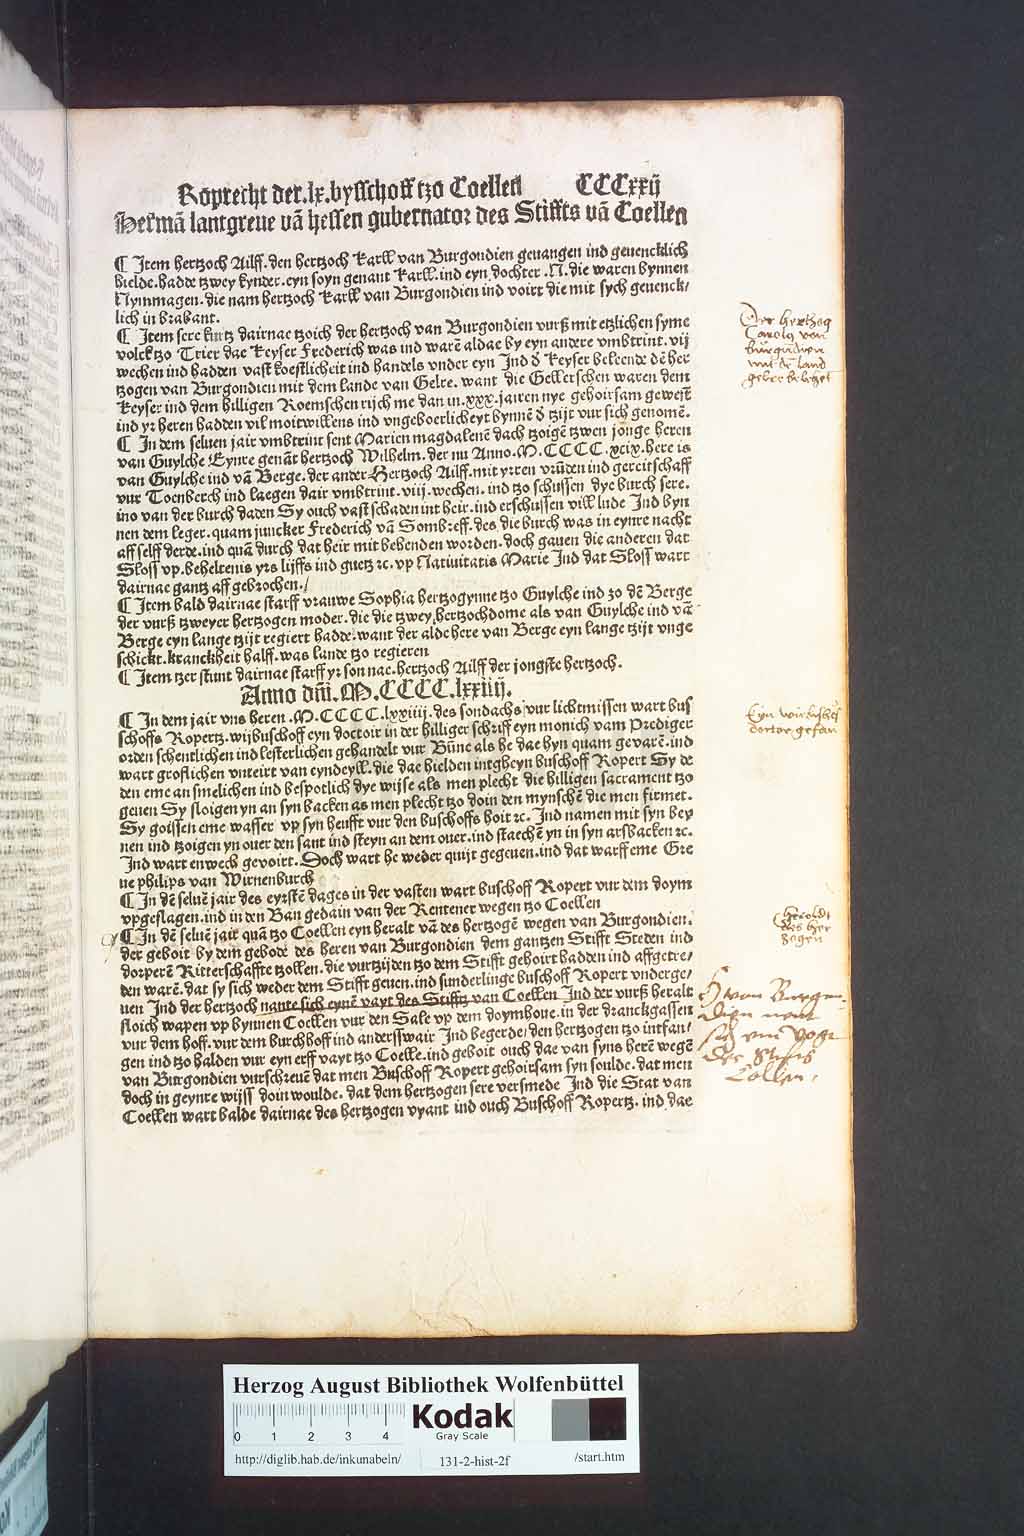 Roprecht der .lx. bysschoff tzo Coellen CCCxxij
Hermā lantgreve vā hessen gubernator des Stiffts vā Coellen
¶ Item hertzoch Ailff. den hertzoch Karll van Burgondien gevangen ind gevencklich
hielde. hadde tzwey kynder. eyn soyn genant Karll. ind eyn dochter .N. die waren bynnen
Nymmagen. die nam hertzoch Karll van Burgondien ind voirt die mit sych gevenck/
lich in brabant.
¶ Item sere kurtz dairnae tzoich der hertzoch van Burgondien vurß mit etzlichen syme
volck tzo Trier dae Keyser Frederich was ind warē aldae by eyn andere vmbtrint. vij
wechen ind hadden vast koestlicheit ind handels vnder eyn Ind d' Keyser beleende dē her
tzogen van Burgondien mit dem lande van Gelre. want die Gellerschen waren dem
Keyser ind dem hilligen Roemschen rijch me dan in .xxx. jairen nye gehoirsam gewest
ind yr heren hadden vil moitwillens ind vngeboerlicheyt bynnē d' tzijt vur sich genomē.
¶ In dem seluen jair vmbtrint sent Marien magdalenē dach tzoigē tzwen jonge heren
van Guylche Eynre genāt hertzoch Wilhelm. der nu Anno. M. CCCC. xcix. here is
van Guylche ind vā Berge. der ander Hertzoch Ailff. mit yrren vrūden ind gereitschaff
vur Toenberch ind laegen dair vmbtrint. viij. wechen. ind tzo schussen dye burch sere.
ind van der burch daden Sy ouch vast schaden int heir. ind erschussen vill lude Ind byn
nen dem leger. quam juncker Frederich vā Sombreff. des die burch was in eynre nacht
aff self derde. ind quā durch dat heir mit behenden worden. doch gauen die anderen dat
Sloss vp. beheltenis yrs lijffs ind guetz ⁊c. vp Natiuitatis Marie Ind dat Sloss wart
dairnae gantz aff gebrochen./
¶ Item bald dairnae starff vrauwe Sophia hertzogynne tzo Guylche ind zo dē Berge
der vurß tzweyer hertzogen moder. die die tzwey hertzochdome als van Guylche ind vā
Berge eyn lange tzijt regiert hadde. want der alde here van Berge eyn lange tzijt vnge
schickt. kranckheit halff. was lande tzo regieren
¶ Item tzer stunt dairnae starff yr son nae. hertzoch Ailff der jongste hertzoch.
Anno dm̄i. M. CCCC. lxxiiij.
¶ In dem jair vns heren .M. CCCC. lxxiiij. des sondachs vur lichtmissen wart bus
schoffs Ropertz. wijbuschoff eyn doctoir in der hilliger schriff eyn monich vam Prediger
orden schentlichen ind lesterlichen gehandelt vur Būne als he dae hyn quam gevarē. ind
wart groslichen vnteirt van eyndeyll. die dae hielden intgheyn buschoff Ropert Sy de
den eme an smelichen ind bespotlich dye wijse als men plecht die hilligen sacrament tzo
geuen Sy sloigen yn an syn backen as men plecht tzo doin den mynschē die men firmet.
Sy goissen eme wasser vp syn heufft vur den buschoffs hoit ⁊c. Ind namen mit syn bey
nen ind tzoigen yn ouer den sant ind steyn an dem ouer. ind staechē yn in syn arsbacken ⁊c.
Ind wart enwech gevoirt. Doch wart he weder quijt gegeuen. ind dat warff eme Gre
ue philips van Wirnenburch
¶ In dē seluē jair des eyrstē dages in der vasten wart buschoff Ropert vur dem doym
vpgeslagen. ind in den Ban gedain van der Rentener wegen tzo Coellen
¶ In dē seluē jair quā tzo Coellen eyn heralt vā des hertzogē wegen van Burgondien.
der geboit by dem gebode des heren van Burgondien dem gantzen Stifft Steden ind
dorperē Ritterschaffte tzollen. die vurtzijden tzo dem Stifft gehoirt hadden ind affgetre/
den warē. dat sy sich weder dem Stifft geuen. ind sunderlinge buschoff Ropert vnderge/
uen Ind der hertzoch nante sich eynē vayt des Stifftz van Coellen Ind der vurß heralt
sloich wapen vp bynnen Coellen vur den Sale vp dem doymhoue. in der dranckgassen
vur dem hoff. vur dem burchhoff ind andersswair Ind begerde den hertzogen tzo intfan/
gen ind tzo halden vur eyn erff vayt tzo Coelle. ind geboit ouch dae van syns herē wegē
van Burgondien vurschreuē dat men Buschoff Ropert gehoirsam syn soulde. dat men
doch in geynre wijss doin woulde. dat dem hertzogen sere versmede Ind die Stat van
Coellen wart balde dairnae des hertzogen vyant ind ouch Buschoff Ropertz. ind dae
Der hertzog
Carolus von
burgundien
mit dē land
gelre belehet
Eyn wirdisher
doctor gefan
Herolds
des her
zogen
H von Burgun-
dien nent
sich ein Vogt
des Stiffts
Collen.
Herzog August Bibliothek Wolfenbüttel
0 1 2 3 4
Kodak
Gray Scale
http://diglib.hab.de/inkunabeln/ 131-2-hist-2f /start.htm